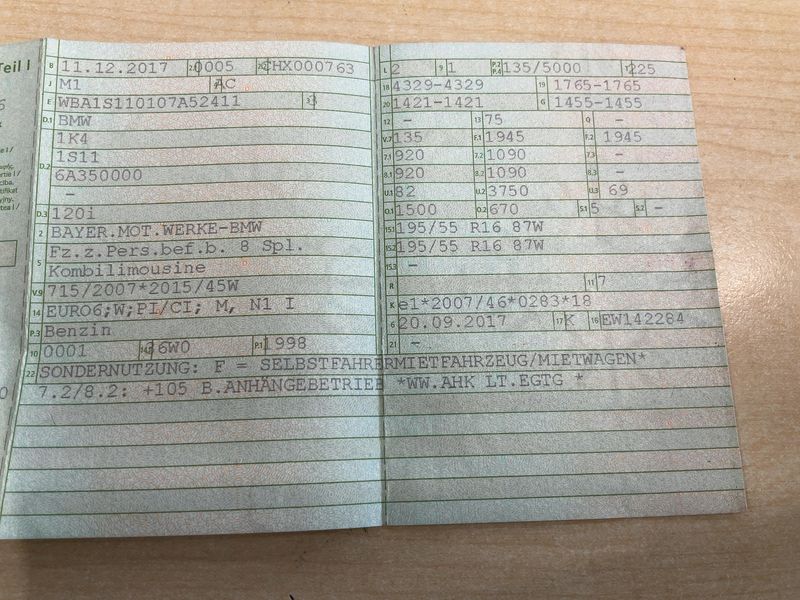 Teil I
B 11.12.2017 2.1 0005 2.2 CHX000763
J M1 4 AC
E WBA1S110107A52411 3 3
D.1 BMW
D.2 1K4
1S11
6A350000
–
D.3 120i
2 BAYER.MOT.WERKE-BMW
5 Fz.z.Pers.bef.b. 8 Spl.
Kombilimousine
V.9 715/2007*2015/45W
14 EURO6;W;PI/CI; M, N1 I
P.3 Benzin
10 0001 14.1 36W0 P.1 1998
22 SONDERNUTZUNG: F = SELBSTFAHRERMIETFAHRZEUG/MIETWAGEN*
7.2/8.2: +105 B.ANHÄNGEBETRIEB *WW.AHK LT.EGTG *
L 2 9 1 P.2 P.4 135/5000 T 225
18 4329-4329 19 1765-1765
20 1421-1421 G 1455-1455
12 – 13 75 Q –
V.7 135 F.1 1945 F.2 1945
7.1 920 7.2 1090 7.3 –
8.1 920 8.2 1090 8.3 –
U.1 82 U.2 3750 U.3 69
O.1 1500 O.2 670 S.1 5 S.2 –
15.1 195/55 R16 87W
15.2 195/55 R16 87W
15.3 –
R 11 7
K e1*2007/46*0283*18
6 20.09.2017 17 K 16 EW142284
21 –